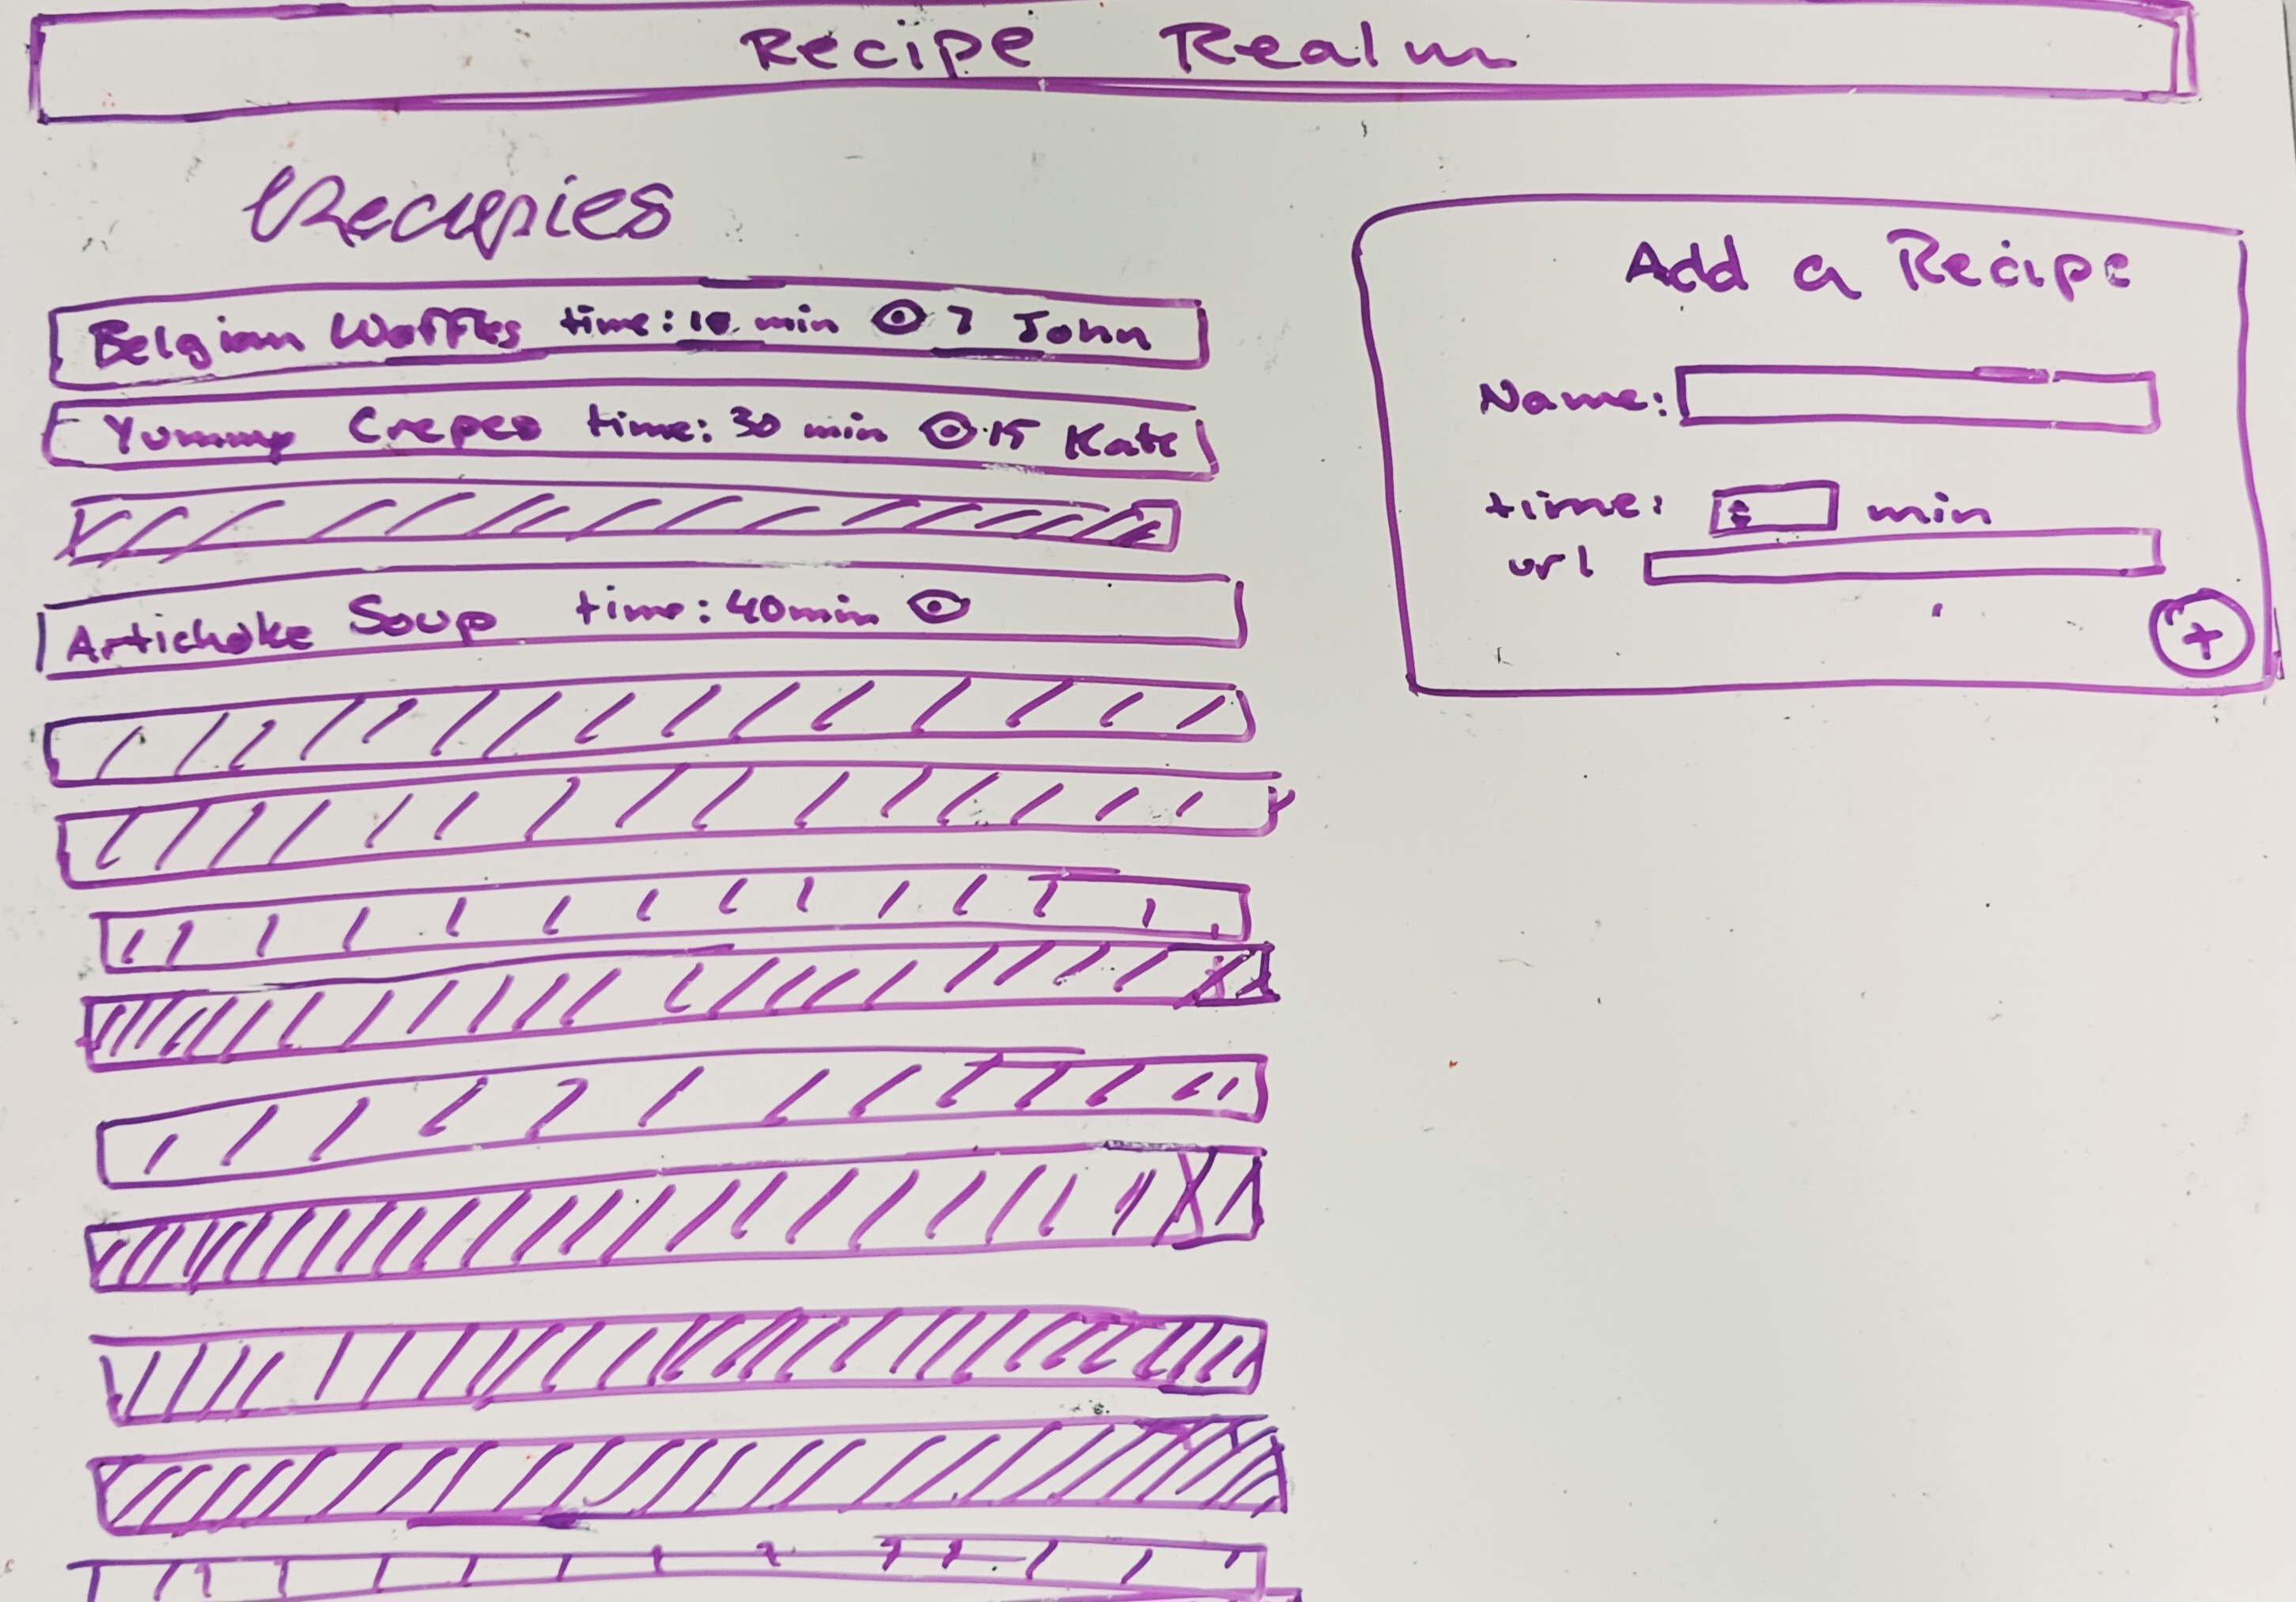 Recipe Realm
Recipies
Belgian Waffles time: 10 min 7 John
Yummy Crepes time: 30 min 15 Kate
Artichoke Soup time: 40min
Add a Recipe
Name:
time: min
url
+